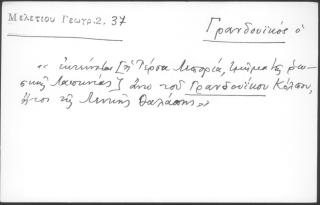 Μελετίου Γεωγρ. 2, 37
Γρανδουϊκός ὁ
« ἐκτείνεται [ἡ Τέρσα Λαπορία, τμῆμα τῆς ρωσ-
σικῆς Λαππωνίας] ἀπὸ τοῦ Γρανδουΐκου Κόλπου,
ἤτοι τῆς Λευκῆς Θαλάσσης »